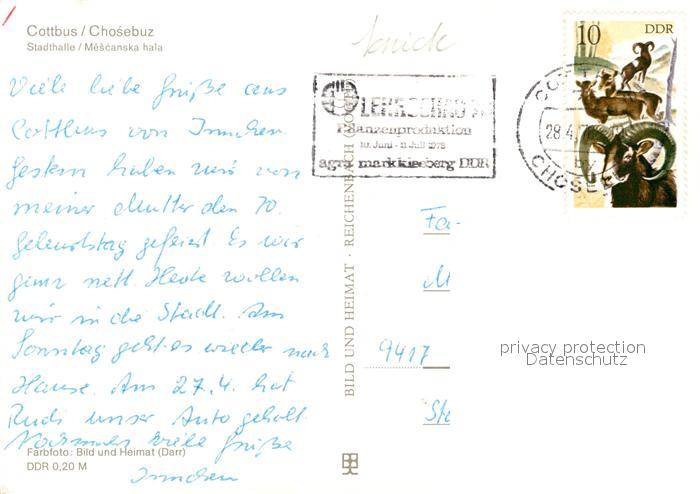 Cottbus / Chośebuz
Stadthalle / Měšćanska hala
knick
Viele liebe Grüße aus
Cottbus von Irmchen.
Gestern haben wir von
meiner Mutter den 70.
Geburtstag gefeiert. Es war
ganz nett. Heute wollen
wir in die Stadt. Am
Sonntag geht es wieder nach
Hause. Am 27.4. hat
Rudi unser Auto geholt.
Nochmals viele Grüße
Irmchen
Farbfoto: Bild und Heimat (Darr)
DDR 0,20 M
BILD UND HEIMAT · REICHENBACH (VOGTL)
LEHRSCHAU
Pflanzenproduktion
10. Juni - 11. Juli 1978
agra markkleeberg DDR
28.4.
CHOŚEB
10 DDR
Fa-
M
9417
Str
privacy protection
Datenschutz